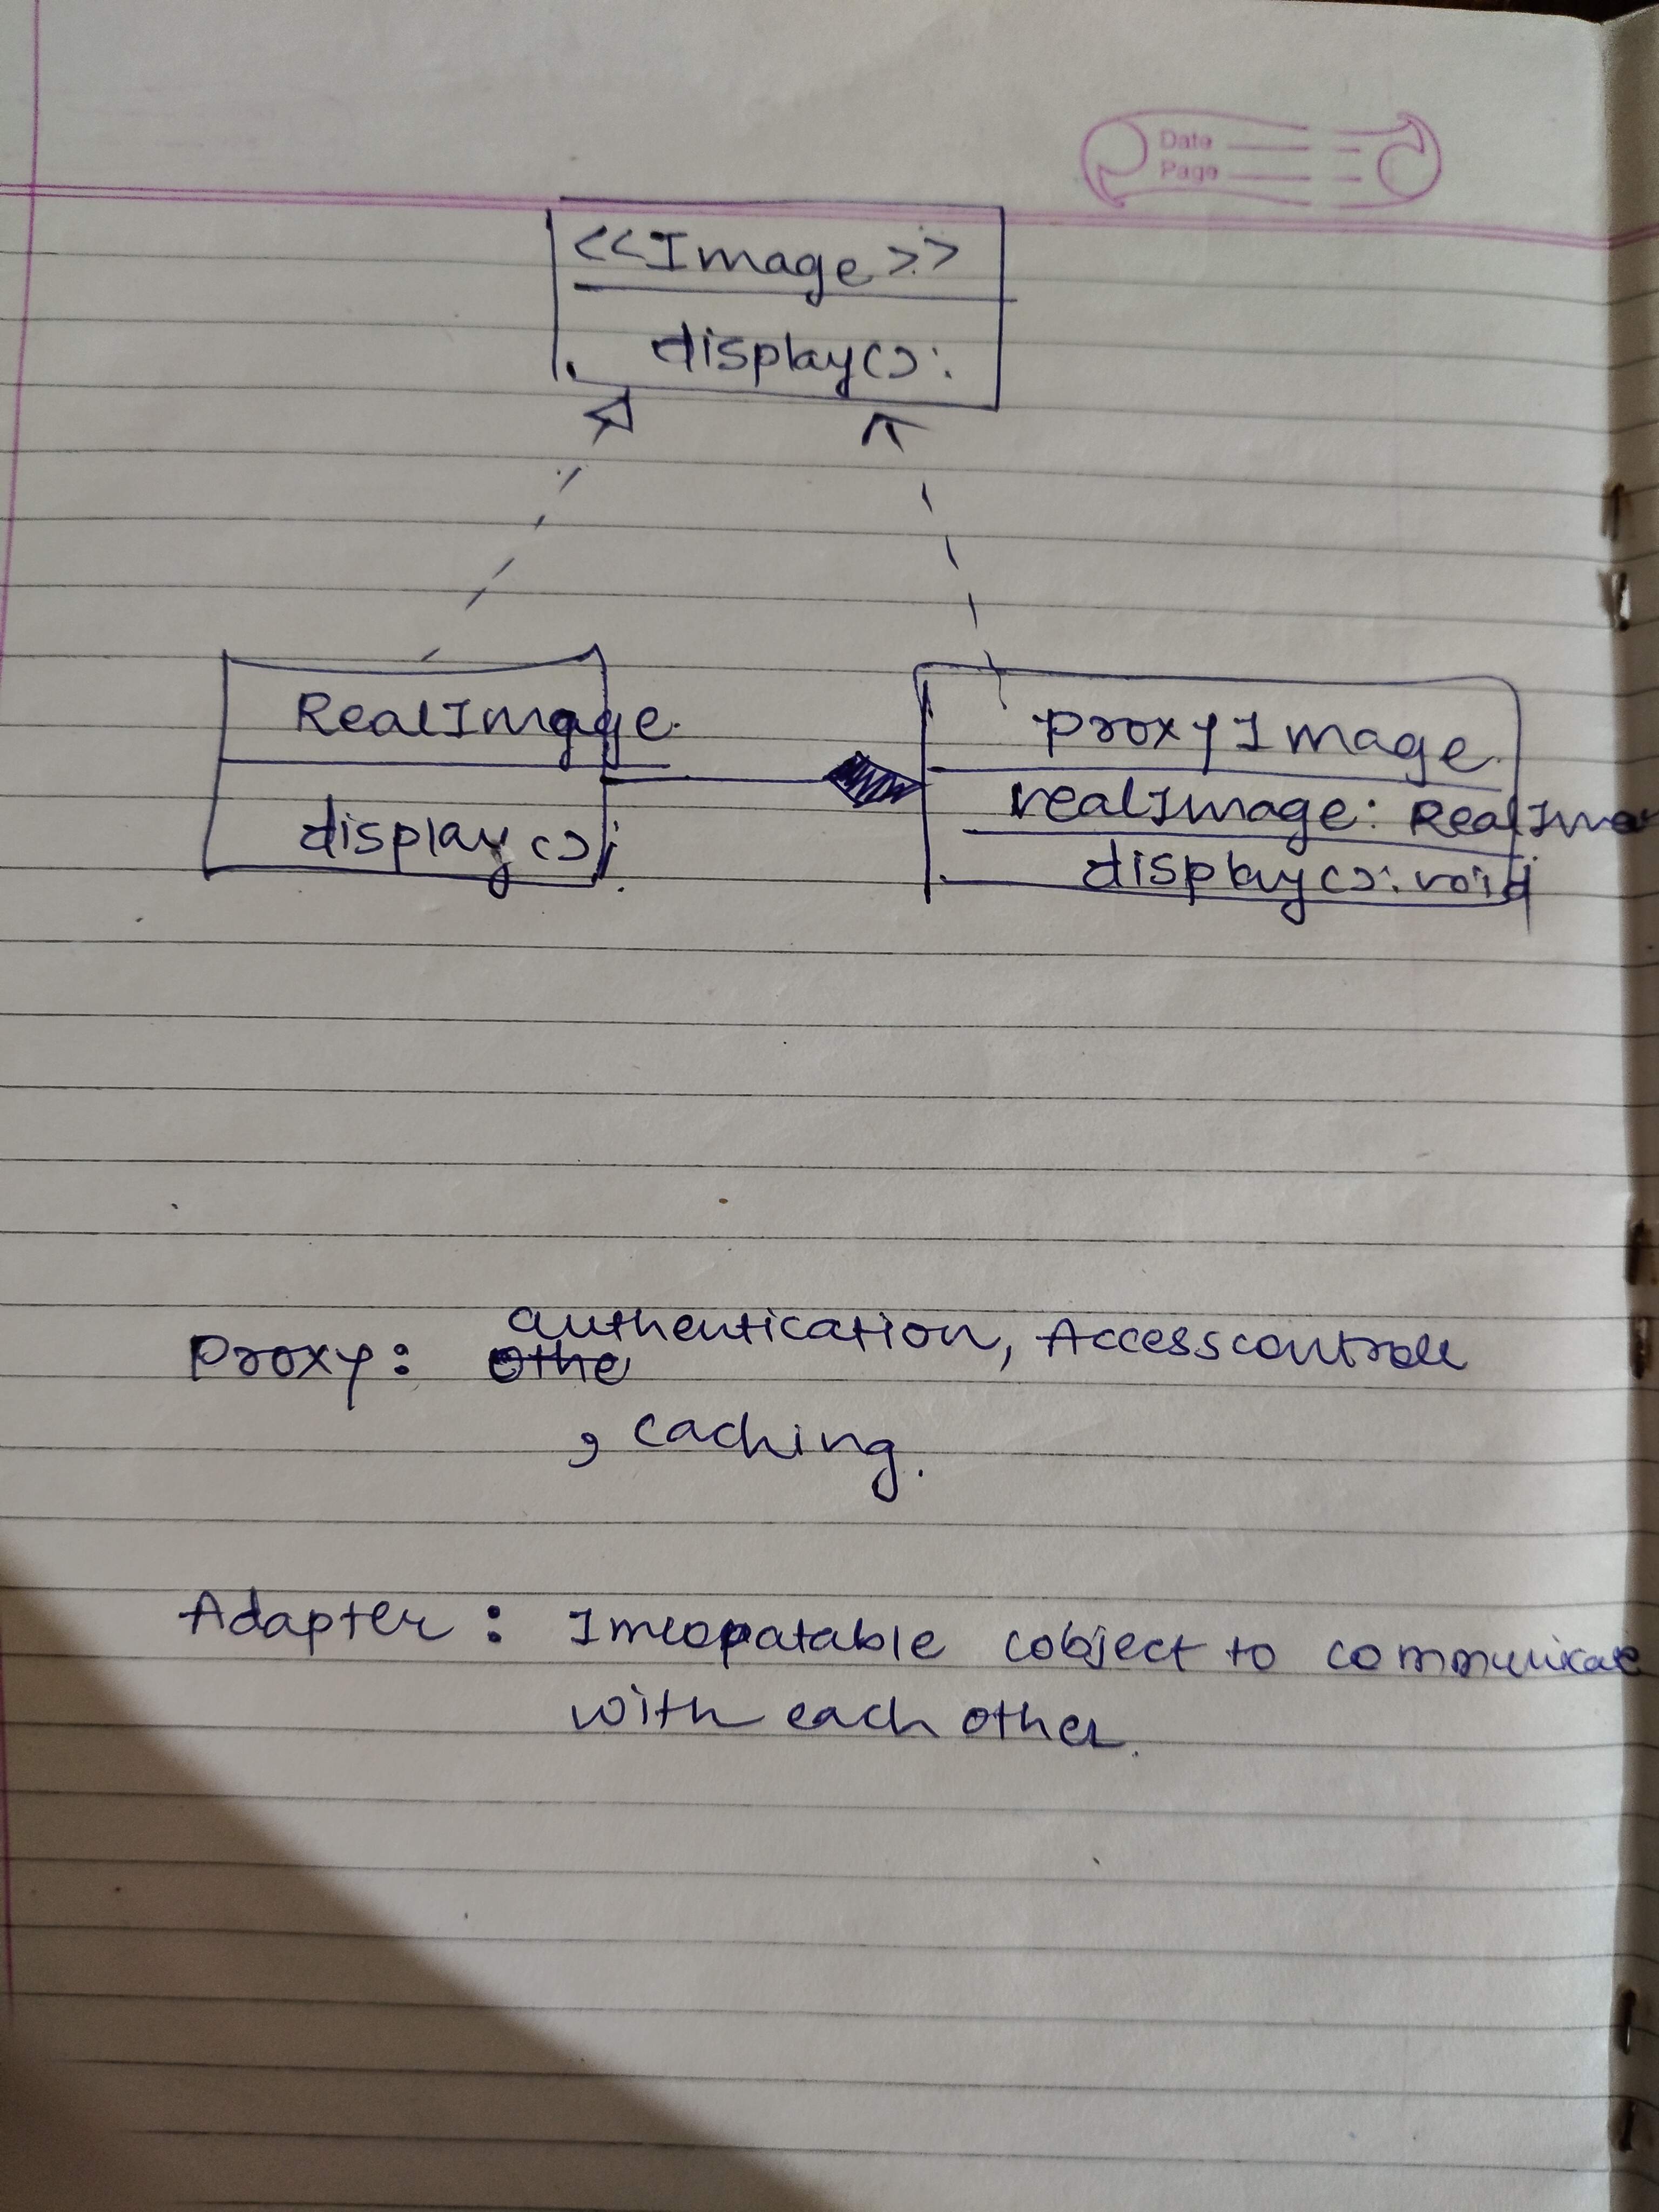 Date
Page
<<Image>>
display():
RealImage.
display();
proxyImage.
realImage: RealIma
display(): void
authentication, Accesscontroll
Proxy: Othe
, caching.
Adapter: Imcopatable cobject to communicate
with each other.